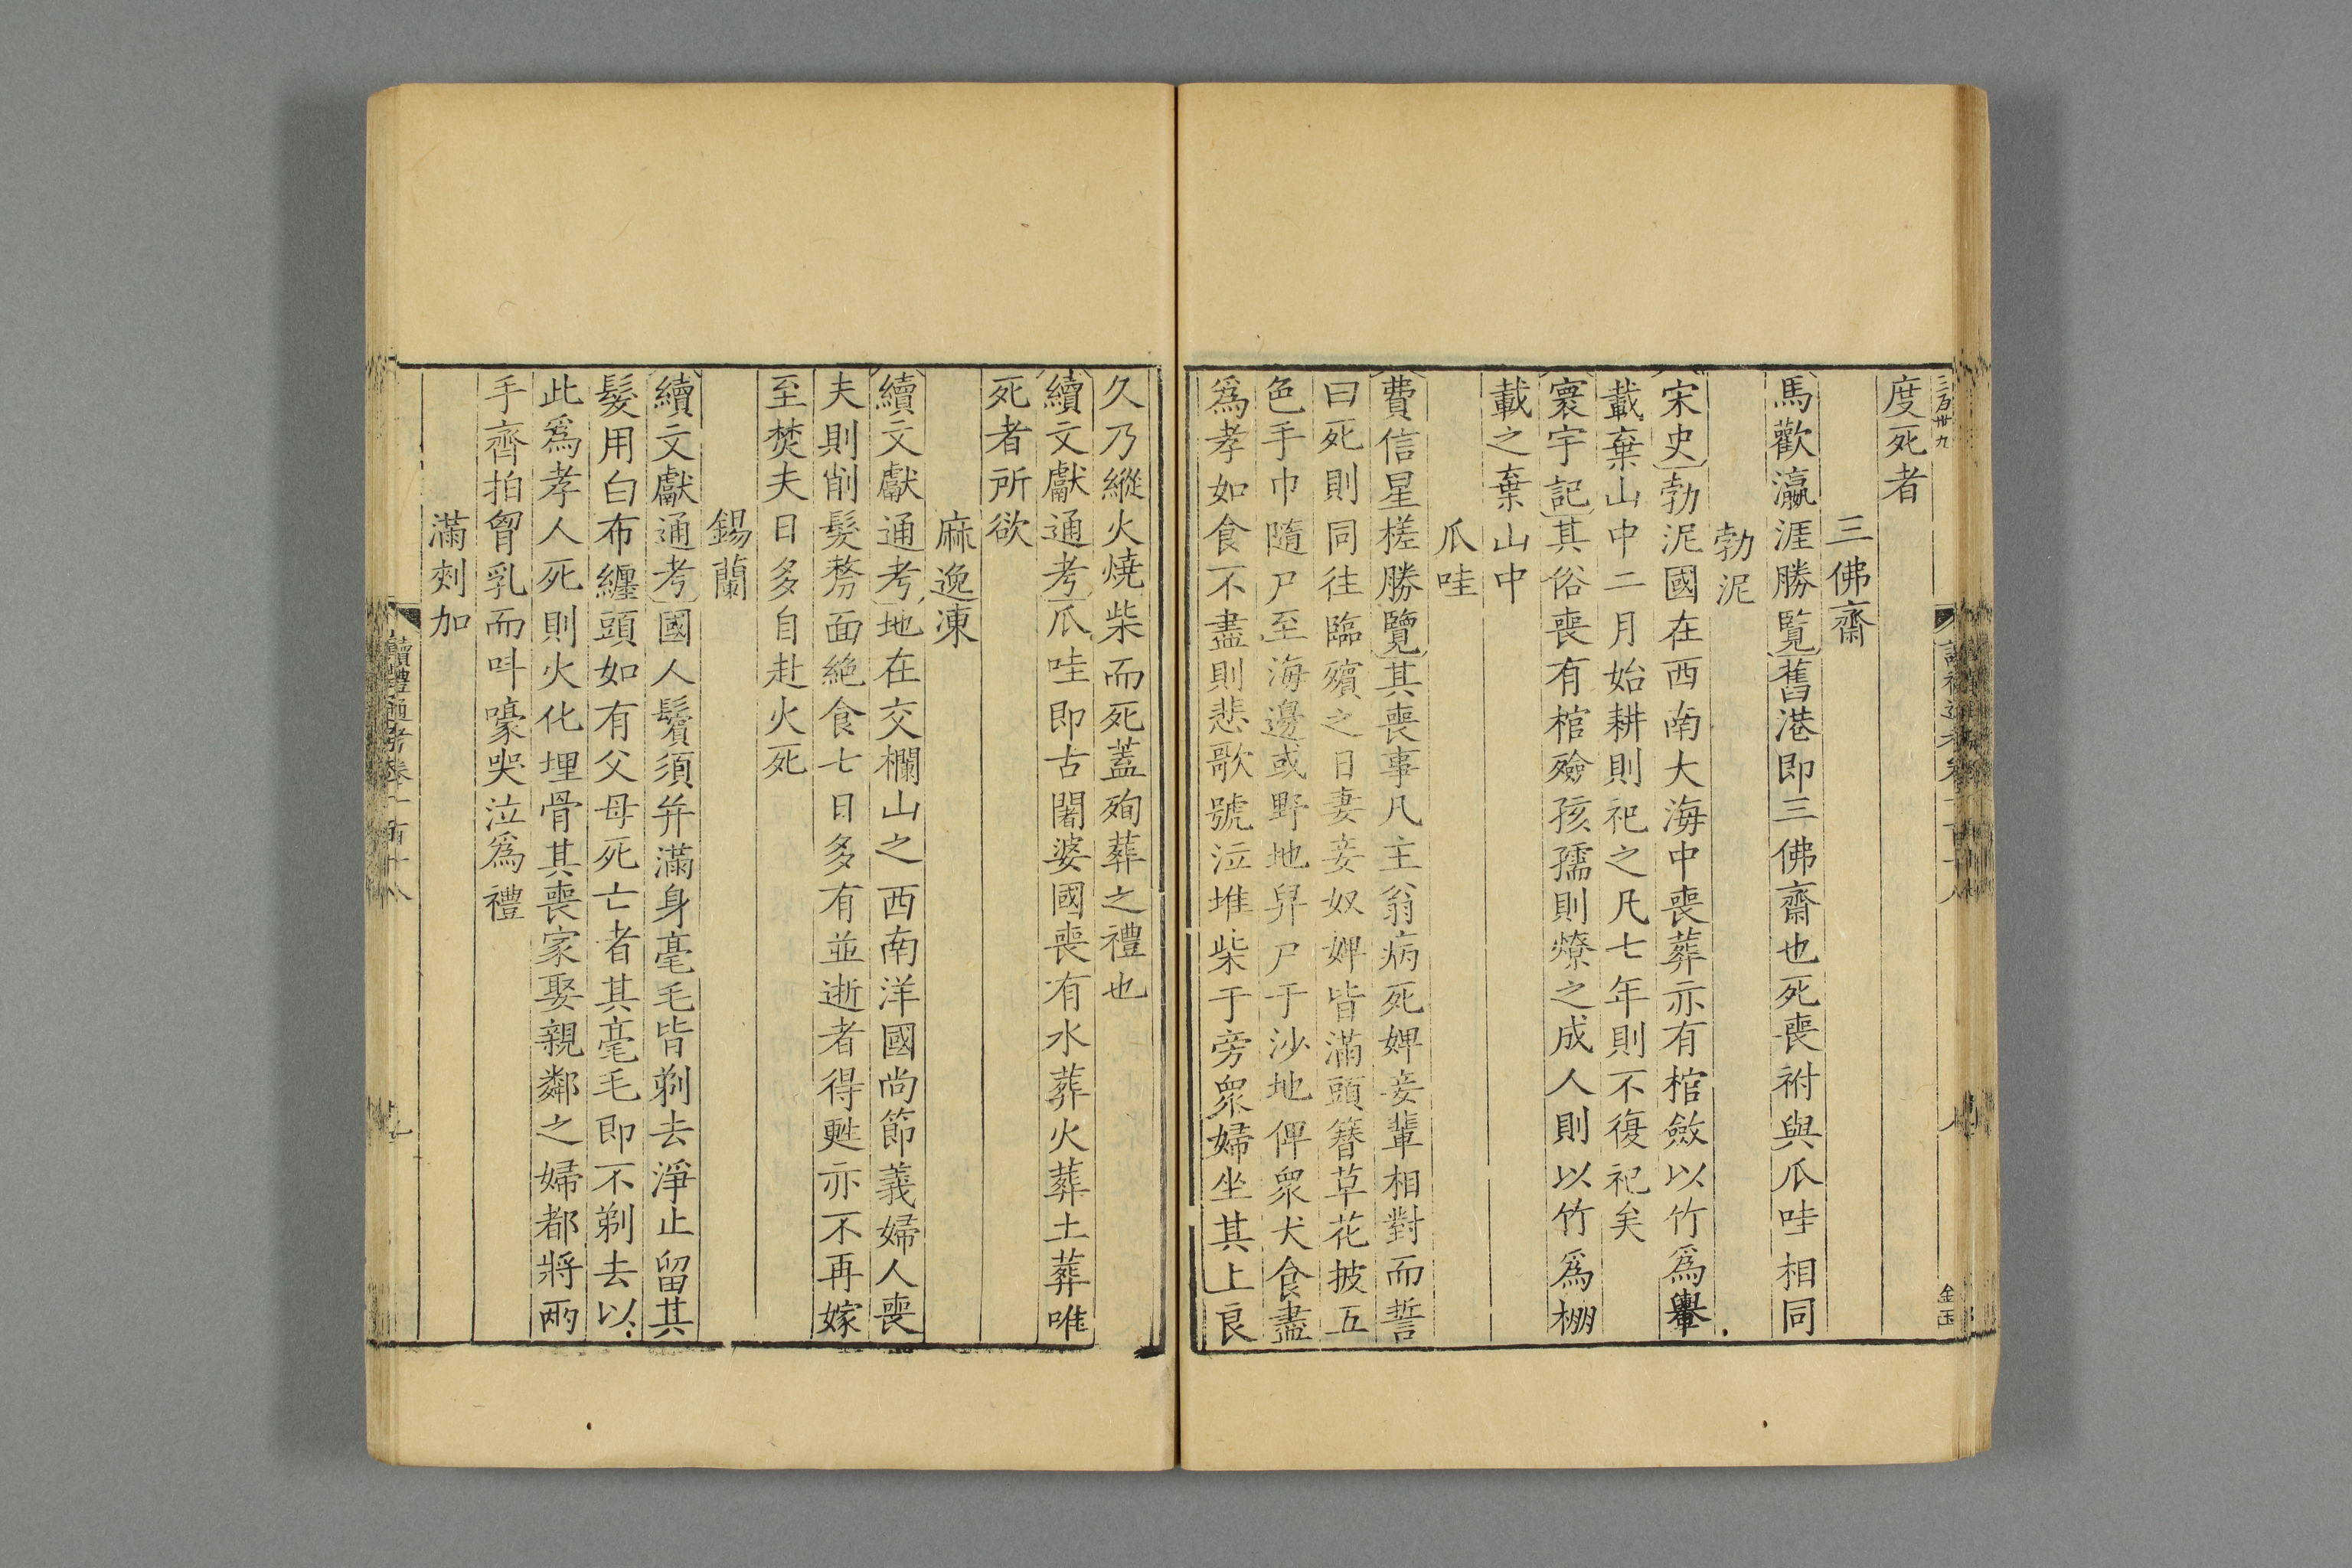 度死者
三佛齋
馬歡瀛涯勝覧舊港即三佛齋也死喪祔與爪哇相同
勃泥
宋史勃泥國在西南大海中喪葬亦有棺斂以竹爲轝
載棄山中二月始耕則祀之凡七年則不復祀矣
寰宇記其俗喪有棺殮孩孺則燎之成人則以竹爲棚
載之棄山中
爪哇
費信星槎勝覽其喪事凡主翁病死婢妾輩相對而誓
曰死則同往臨殯之日妻妾奴婢皆滿頭簪草花披五
色手巾隨尸至海邊或野地舁尸于沙地俾眾犬食盡
爲孝如食不盡則悲歌號泣堆柴于旁眾婦坐其上良
久乃縱火燒柴而死蓋殉葬之禮也
續文獻通考爪哇即古闍婆國喪有水葬火葬土葬唯
死者所欲
麻逸凍
續文獻通考地在交欄山之西南洋國尚節義婦人喪
夫則削髮剺面絶食七日多有並逝者得甦亦不再嫁
至焚夫日多自赴火死
錫蘭
續文獻通考國人鬢須并滿身毫毛皆剃去淨止留其
髮用白布纏頭如有父母死亡者其毫毛即不剃去以
此爲孝人死則火化埋骨其喪家娶親鄰之婦都將兩
手齊拍胷乳而叫嚎哭泣爲禮
滿剌加
續禮通考卷一百十八